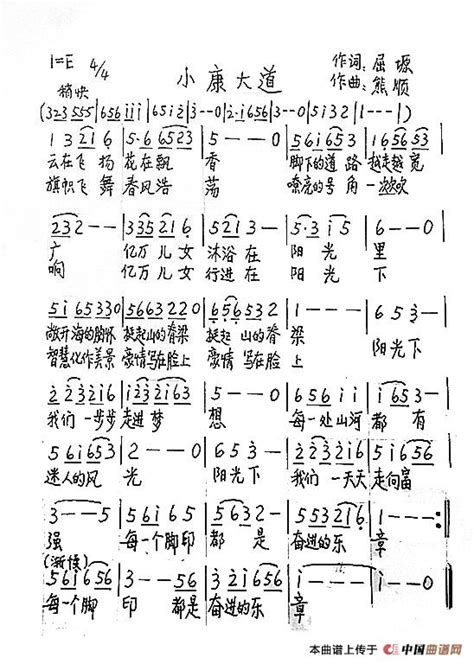 1=E 4/4
小康大道
作词:屈塬
作曲:熊顺
稍快
(323 555|656 i i i|65i2|3--0|2·i656|3--0|5i32|1--|)
1 3 2 i 6|5·6 6523|5---0|5 6 i 6 5 3|1 6 5 6 5 3
云在飞扬 花在飘 香 脚下的道路越走越宽
旗帜飞舞 春风浩 荡 嘹亮的号角一次次吹
232--|3355 2 1 6|5213-|5·3 i 5|6--0
广 亿万儿女 沐浴在 阳光 里
响 亿万儿女 行进在 阳光 下
5 i 65330|56632220|6·5653 2|1--0|6 5 3·
敞开海的胸怀 挺起山的脊梁 挺起山的脊梁 阳光下
智慧化作美景 豪情写在脸上 豪情写在脸上
2 2 3 2 i 6|i 2 3 2 i 6 3|3---|6 6 5 6 i i|6 5 3 2
我们一步步走进梦 想 每一处山河都有
5 6 i 6 5 3|2--0|6 5 3·|2 2 3 2 2 i 6|5 i 6 5 6
迷人的风 光 阳光下 我们一天天走向富
3---|5 6 i 6 5|5 6 3 2·|5 5 3 2 1 6|1---:‖
强 每一个脚印 都是 奋进的乐 章
(渐慢)
5 6 i 6 5 6|3--56|6·i 2 i 6 5 6|i---|i--0‖
每一个脚 印 都是 奋进的乐 章
本曲谱上传于 中国曲谱网